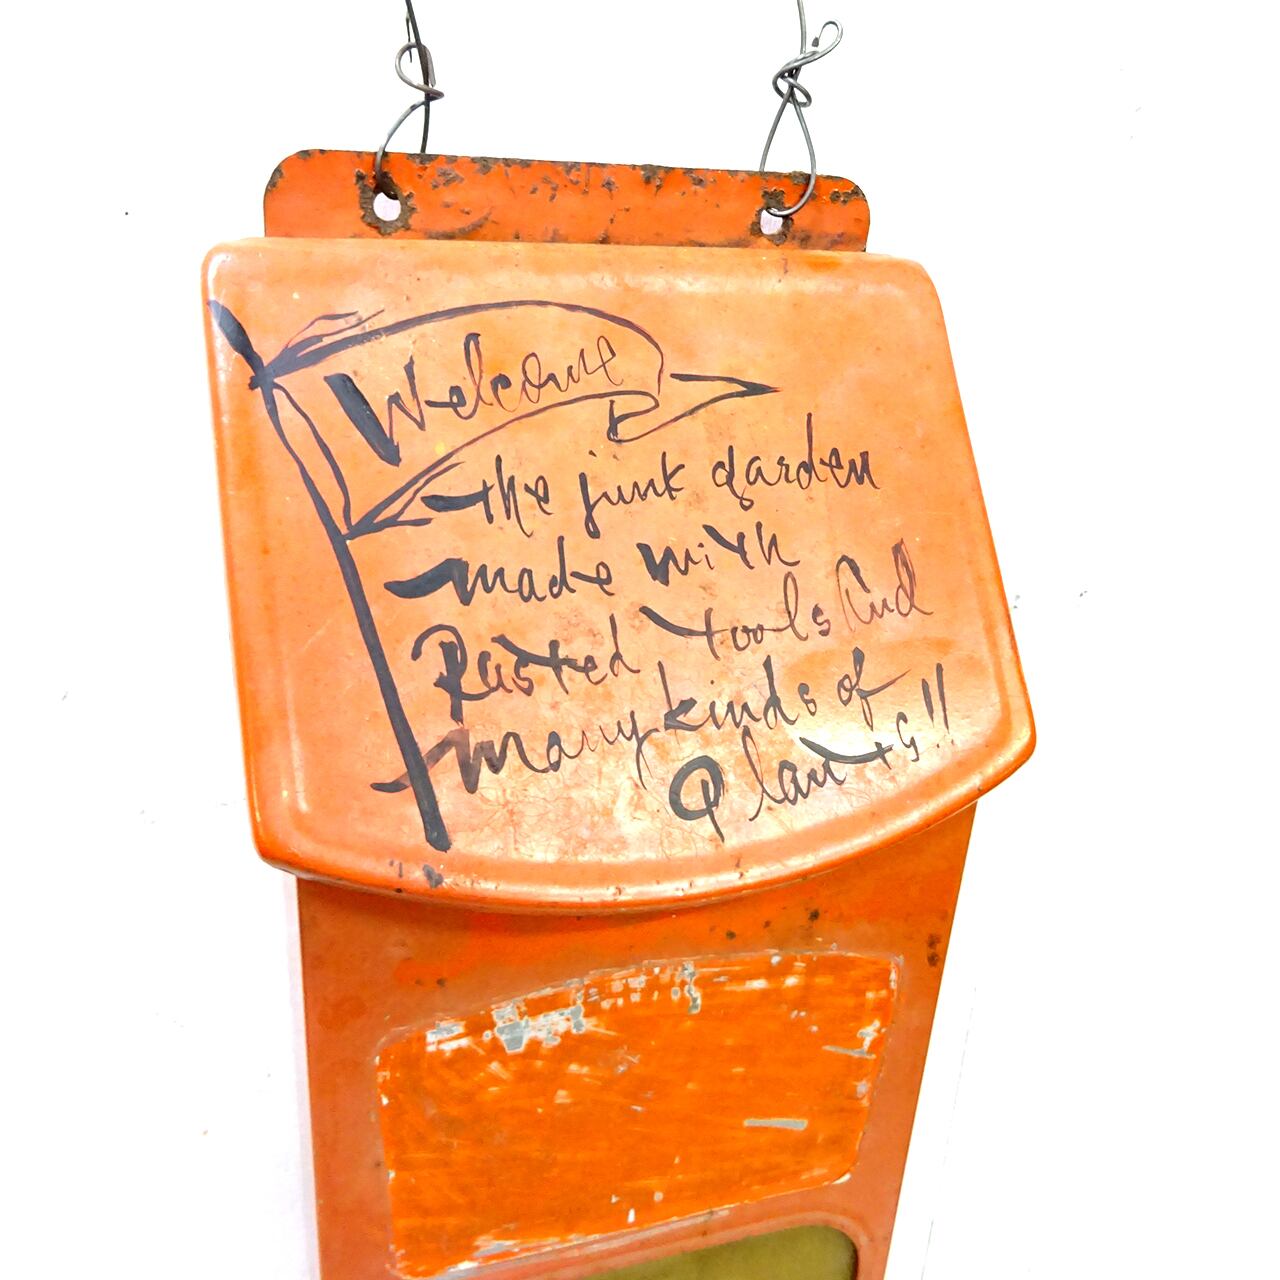 Welcome
the junk garden
made with
Rusted tools And
many kinds of
Plants!!